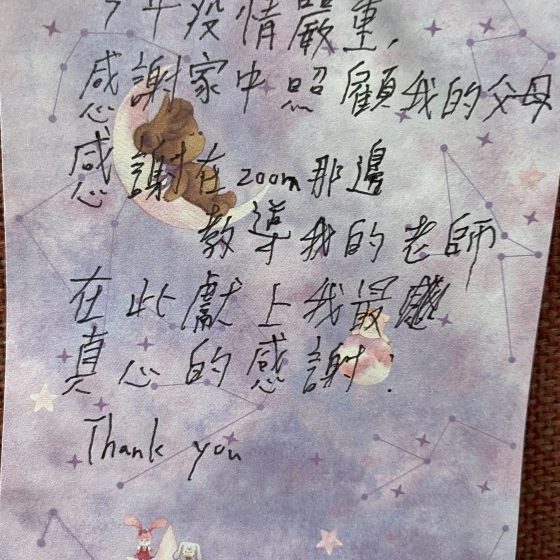 今年疫情嚴重,
感謝家中照顧我的父母
感謝在zoom那邊
教導我的老師
在此獻上我最
真心的感謝:
Thank you